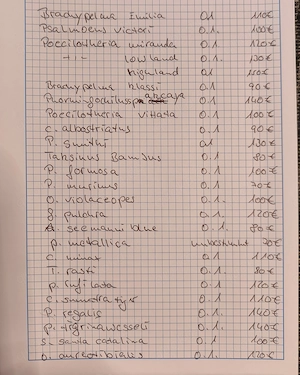 Brachypelma Emilia 0.1 110€
Psalmoeus victori 0.1. 100€
Poecilotheria miranda 0.1 120€
-11- lowland 0.1. 130€
highland 0.1
Brachypelma klassi 0.1 90€
0.1 140€
Poecilotheria vittata 0.1 100€
C. albostriatus 0.1 90€
P. smithi 0.1 130€
Tahsinus Bambus 0.1 80€
P. formosa 0.1 100€
P. murinus 0.1 70€
O. violaceopes 0.1. 100€
g. pulchra 0.1. 120€
A. seemanni blue 0.1. 80€
p. metallica unbestimmt 70€
C. minax 0.1 110€
T. rasti 0.1. 80€
p. rufilata 0.1 120€
C. sumatra tyr 0.1. 110€
P. regalis 0.1. 140€
p. tigrinawesseli 0.1. 140€
S. senta catalina 0.1. 100€
O. aureotibialis 0.1. 120€